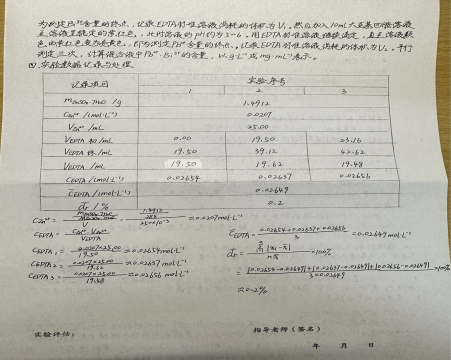 为测定Bi³⁺含量的终点,记录EDTA标准溶液消耗的体积为V₁。然后加入10mL六亚甲基四胺溶液
至溶液呈稳定的紫红色,此时溶液的pH约为5-6。用EDTA标准溶液继续滴定,直至溶液颜
色由紫红色变为亮黄色,即为测定Pb²⁺的终点,记录EDTA标准溶液消耗的体积为V₂。平行
测定三次,计算混合液中Pb²⁺、Bi³⁺的含量,以g·L⁻¹或mg·mL⁻¹表示。
四、实验数据记录与处理
记录项目 实验序号
1 2 3
mZnSO₄·7H₂O /g 1.4912
CZn²⁺ /(mol·L⁻¹) 0.0207
VZn²⁺ /mL 25.00
VEDTA初 /mL 0.00 19.50 23.16
VEDTA终 /mL 19.50 39.12 42.62
VEDTA /mL 19.50 19.62 19.48
CEDTA /(mol·L⁻¹) 0.02654 0.02637 0.02656
C̄EDTA /(mol·L⁻¹) 0.02649
d̄r / % 0.2
CEDTA = CZn²⁺ VZn²⁺ / VEDTA
CEDTA1 = 0.0207×25.00 / 19.50 = 0.02654 mol·L⁻¹
CEDTA2 = 0.0207×25.00 / 19.62 = 0.02637 mol·L⁻¹
CEDTA3 = 0.0207×25.00 / 19.48 = 0.02656 mol·L⁻¹
C̄EDTA = 0.02654+0.02637+0.02656 / 3 = 0.02649 mol·L⁻¹
= |0.02654-0.02649|+|0.02637-0.02649|+|0.02656-0.02649| / 3×0.02649 ×100%
=0.2%
实验评估: 指导老师(签名)
年 月 日